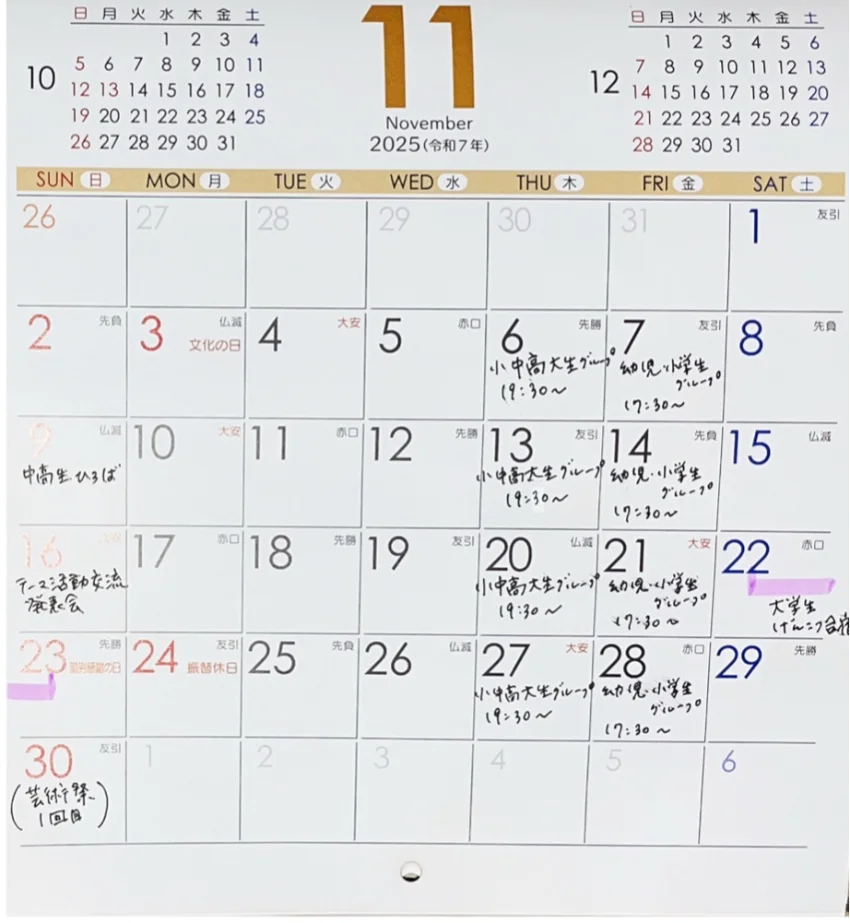 10
日 月 火 水 木 金 土
1 2 3 4
5 6 7 8 9 10 11
12 13 14 15 16 17 18
19 20 21 22 23 24 25
26 27 28 29 30 31
11
November
2025(令和7年)
12
日 月 火 水 木 金 土
1 2 3 4 5 6
7 8 9 10 11 12 13
14 15 16 17 18 19 20
21 22 23 24 25 26 27
28 29 30 31
SUN 日 MON 月 TUE 火 WED 水 THU 木 FRI 金 SAT 土
26 27 28 29 30 31 1 友引
2 先負 3 仏滅 4 大安 5 赤口 6 先勝 7 友引 8 先負
文化の日
小中高大生グループ
19:30〜
幼児・小学生
グループ
17:30〜
9 仏滅 10 大安 11 赤口 12 先勝 13 友引 14 先負 15 仏滅
中高生ひろば
小中高大生グループ
19:30〜
幼児・小学生
グループ
17:30〜
16 大安 17 赤口 18 先勝 19 友引 20 仏滅 21 大安 22 赤口
テーマ活動交流
発表会
小中高大生グループ
19:30〜
幼児・小学生
グループ
17:30〜
大学生
げんこつ合宿
23 先勝 24 友引 25 先負 26 仏滅 27 大安 28 赤口 29 先勝
勤労感謝の日
振替休日
小中高大生グループ
19:30〜
幼児・小学生
グループ
17:30〜
30 友引 1 2 3 4 5 6
(芸術祭
1回目)